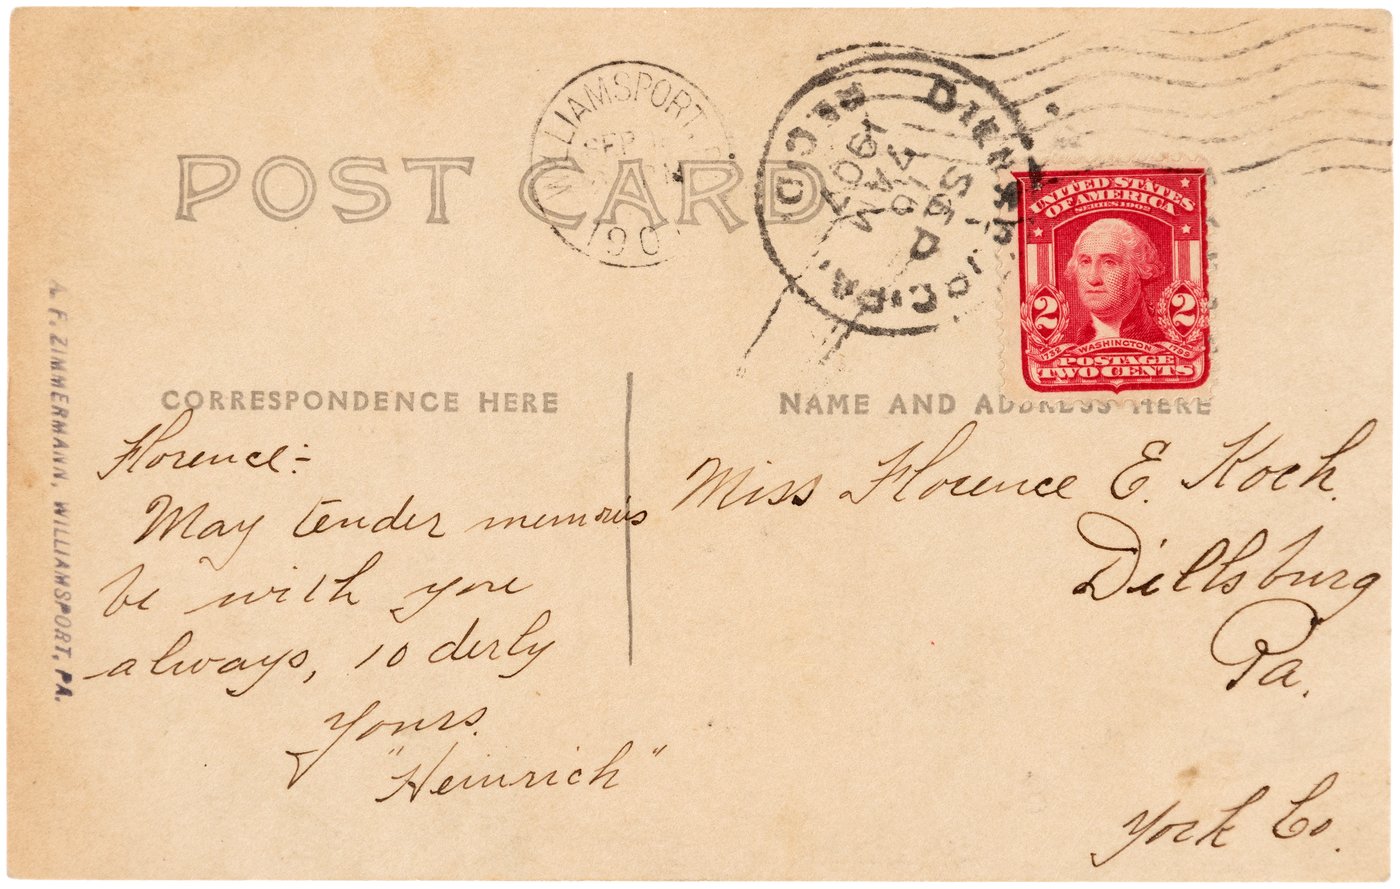 POST CARD
WILLIAMSPORT,
SEP
190
REC'D
1907
AM
UNITED STATES
OF AMERICA
SERIES 1902
2 2
1732 WASHINGTON 1799
POSTAGE
TWO CENTS
A. F. ZIMMERMANN, WILLIAMSPORT, PA.
CORRESPONDENCE HERE
Florence:-
May tender memoris
be with you
always,
yours.
"Heinrich"
NAME AND ADDRESS HERE
Miss Florence E. Koch.
Dillsburg
Pa.
York Co.